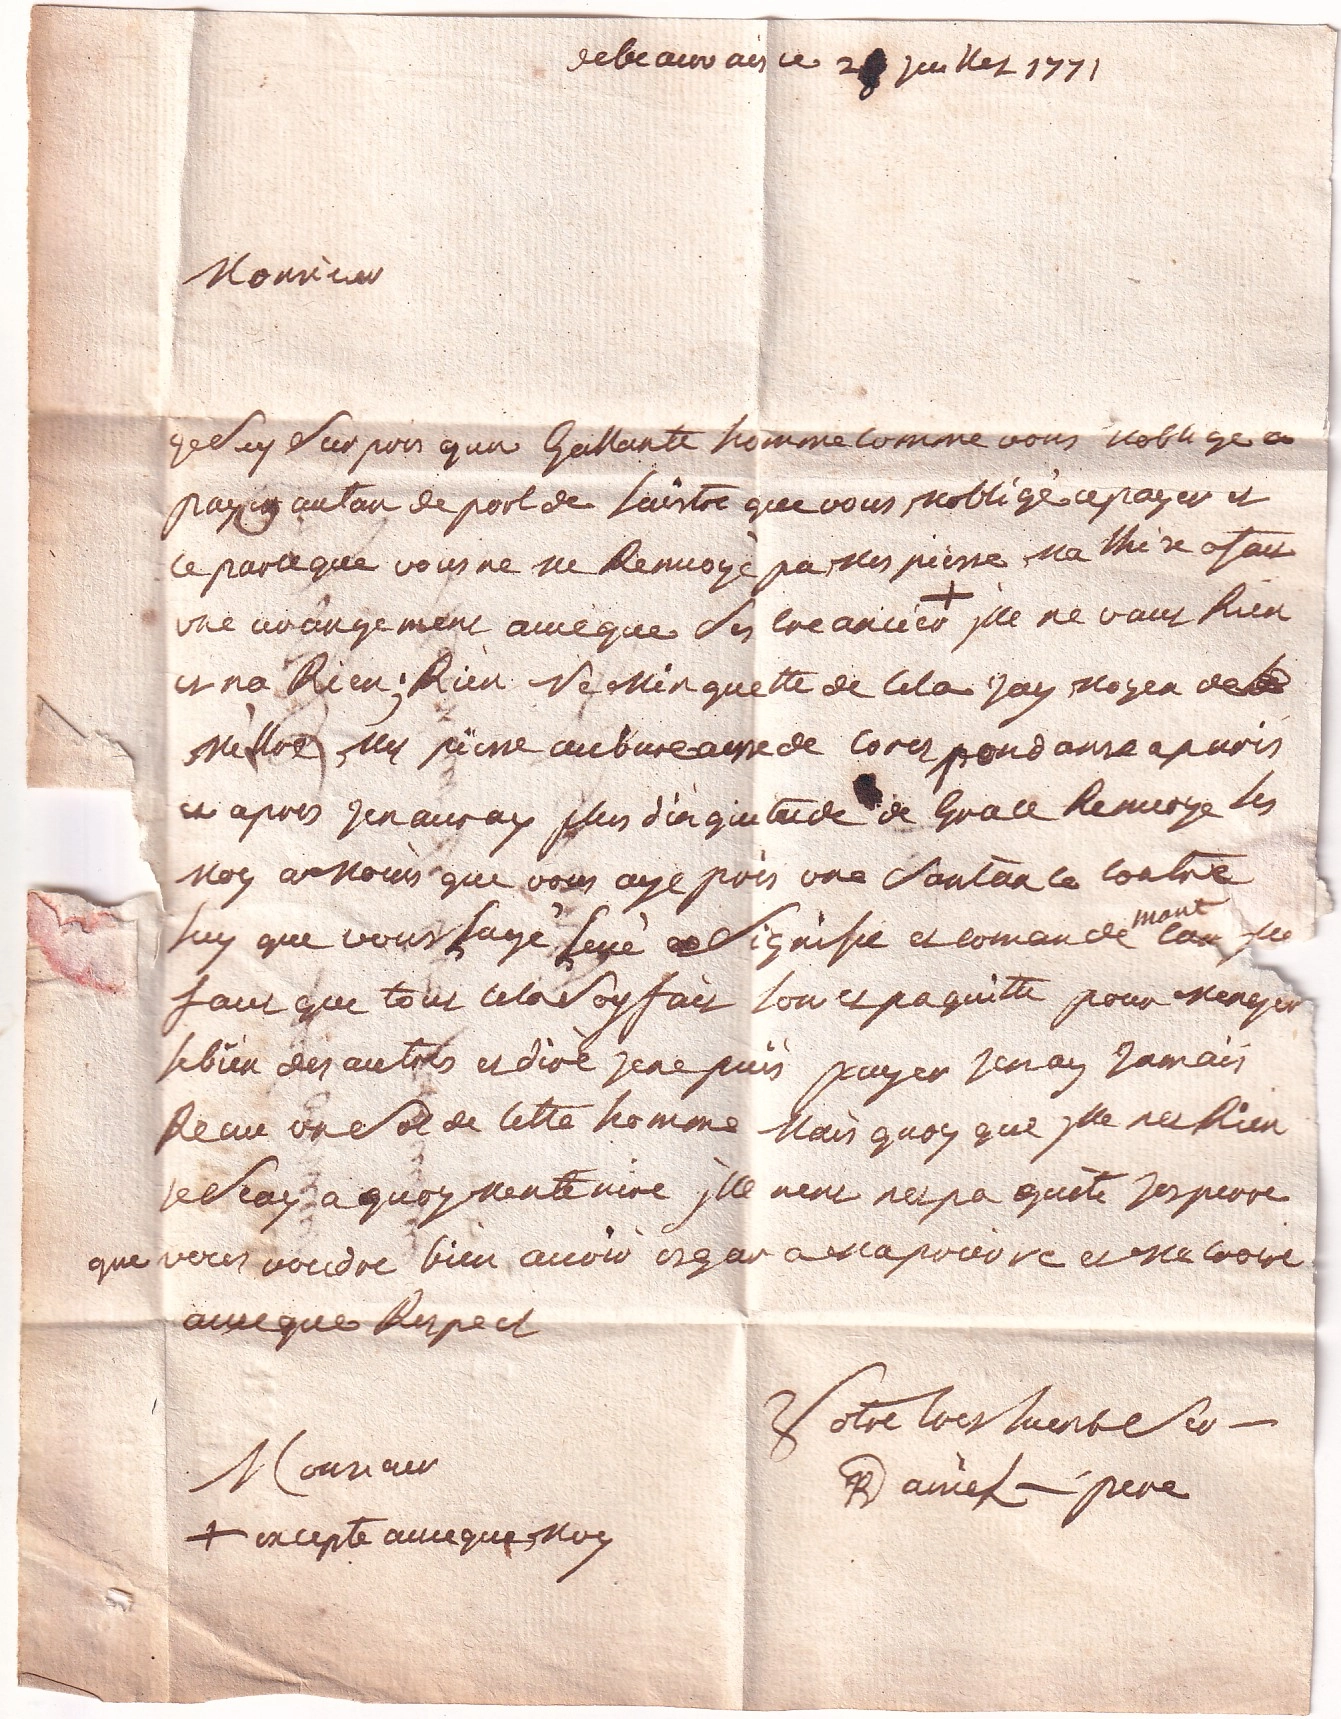 debeauvais ce 28 Juillet 1771
Monsieur
je suy surpris qun gallante homme comme vous moblige a
payer autan de port de laistre que vous mobligé apayer et
ce parceque vous ne me Renvoyé pa mes piesse a fait
une arangement aueque ses creancier + ille ne vaut Rien
et na Rien ; Rien de cela jay moyen de
mettre mes piesse aubureausse de corespondanse aparis
et apres jenauray plus dinquietude de Grace Renvoye les
moy amoins que vous aye pris une santance contre
luy que vous layé levé signifie et comandemant ille
faut que tout cela soy fait pour menger
lebien des autres et dire jene puis payer jenay jamais
Receu une sol de cette homme mais quoy que ille nes Rien
je scay a quoy mentenire ille nent nespa quitte jespere
que vous voudre bien avoir esgar a mapriere et me croire
aueque Respect
Monsieur
Votre tres humble ser
Daniel pere
+ excepte aueque moy